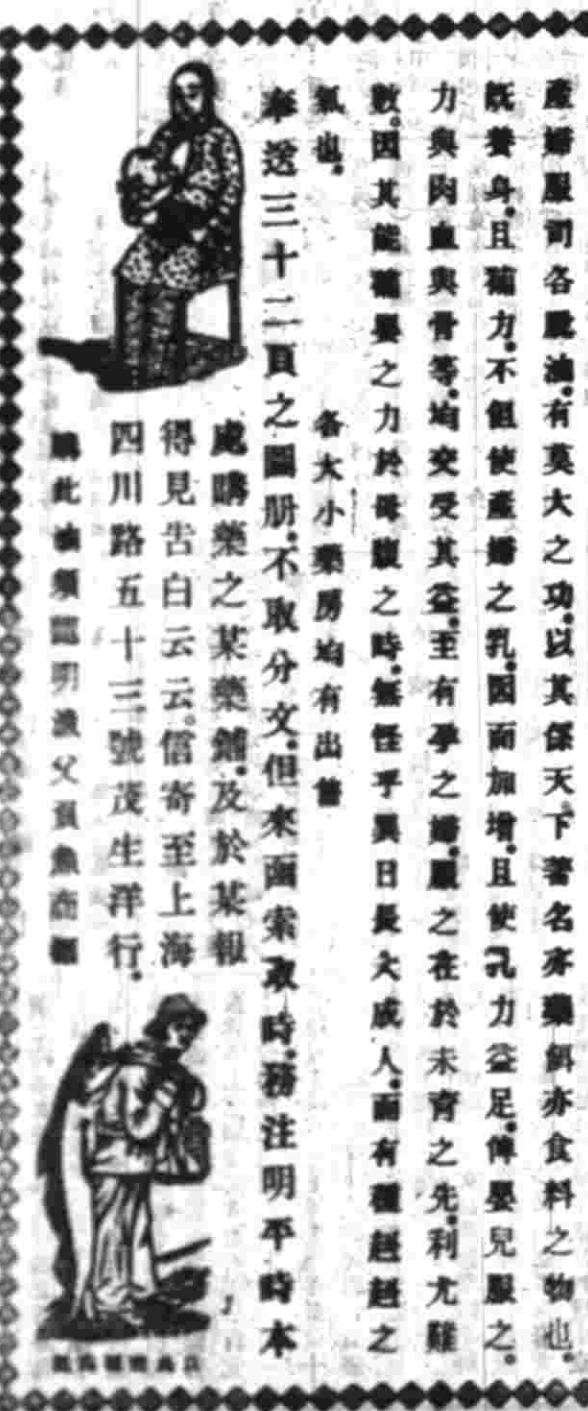 產婦服司各脫油。有莫大之功。以其係天下著名亦藥餌亦食料之物也。
既養身。且補力。不但使產婦之乳。因而加增。且使乳力益足。俾嬰兒服之。
力與肉血與骨等。均交受其益。至有孕之婦。服之在於未育之先。利尤難
數。因其能補嬰之力於母腹之時。無怪乎異日長大成人。而有種赳赳之
氣也。
各大小藥房均有出售
奉送三十二頁之圖册。不取分文。但來函索取時。務注明平時本
處購藥之某藥鋪。及於某報
得見告白云云。信寄至上海
四川路五十三號茂生洋行。
購此油須認明漁父負魚商標